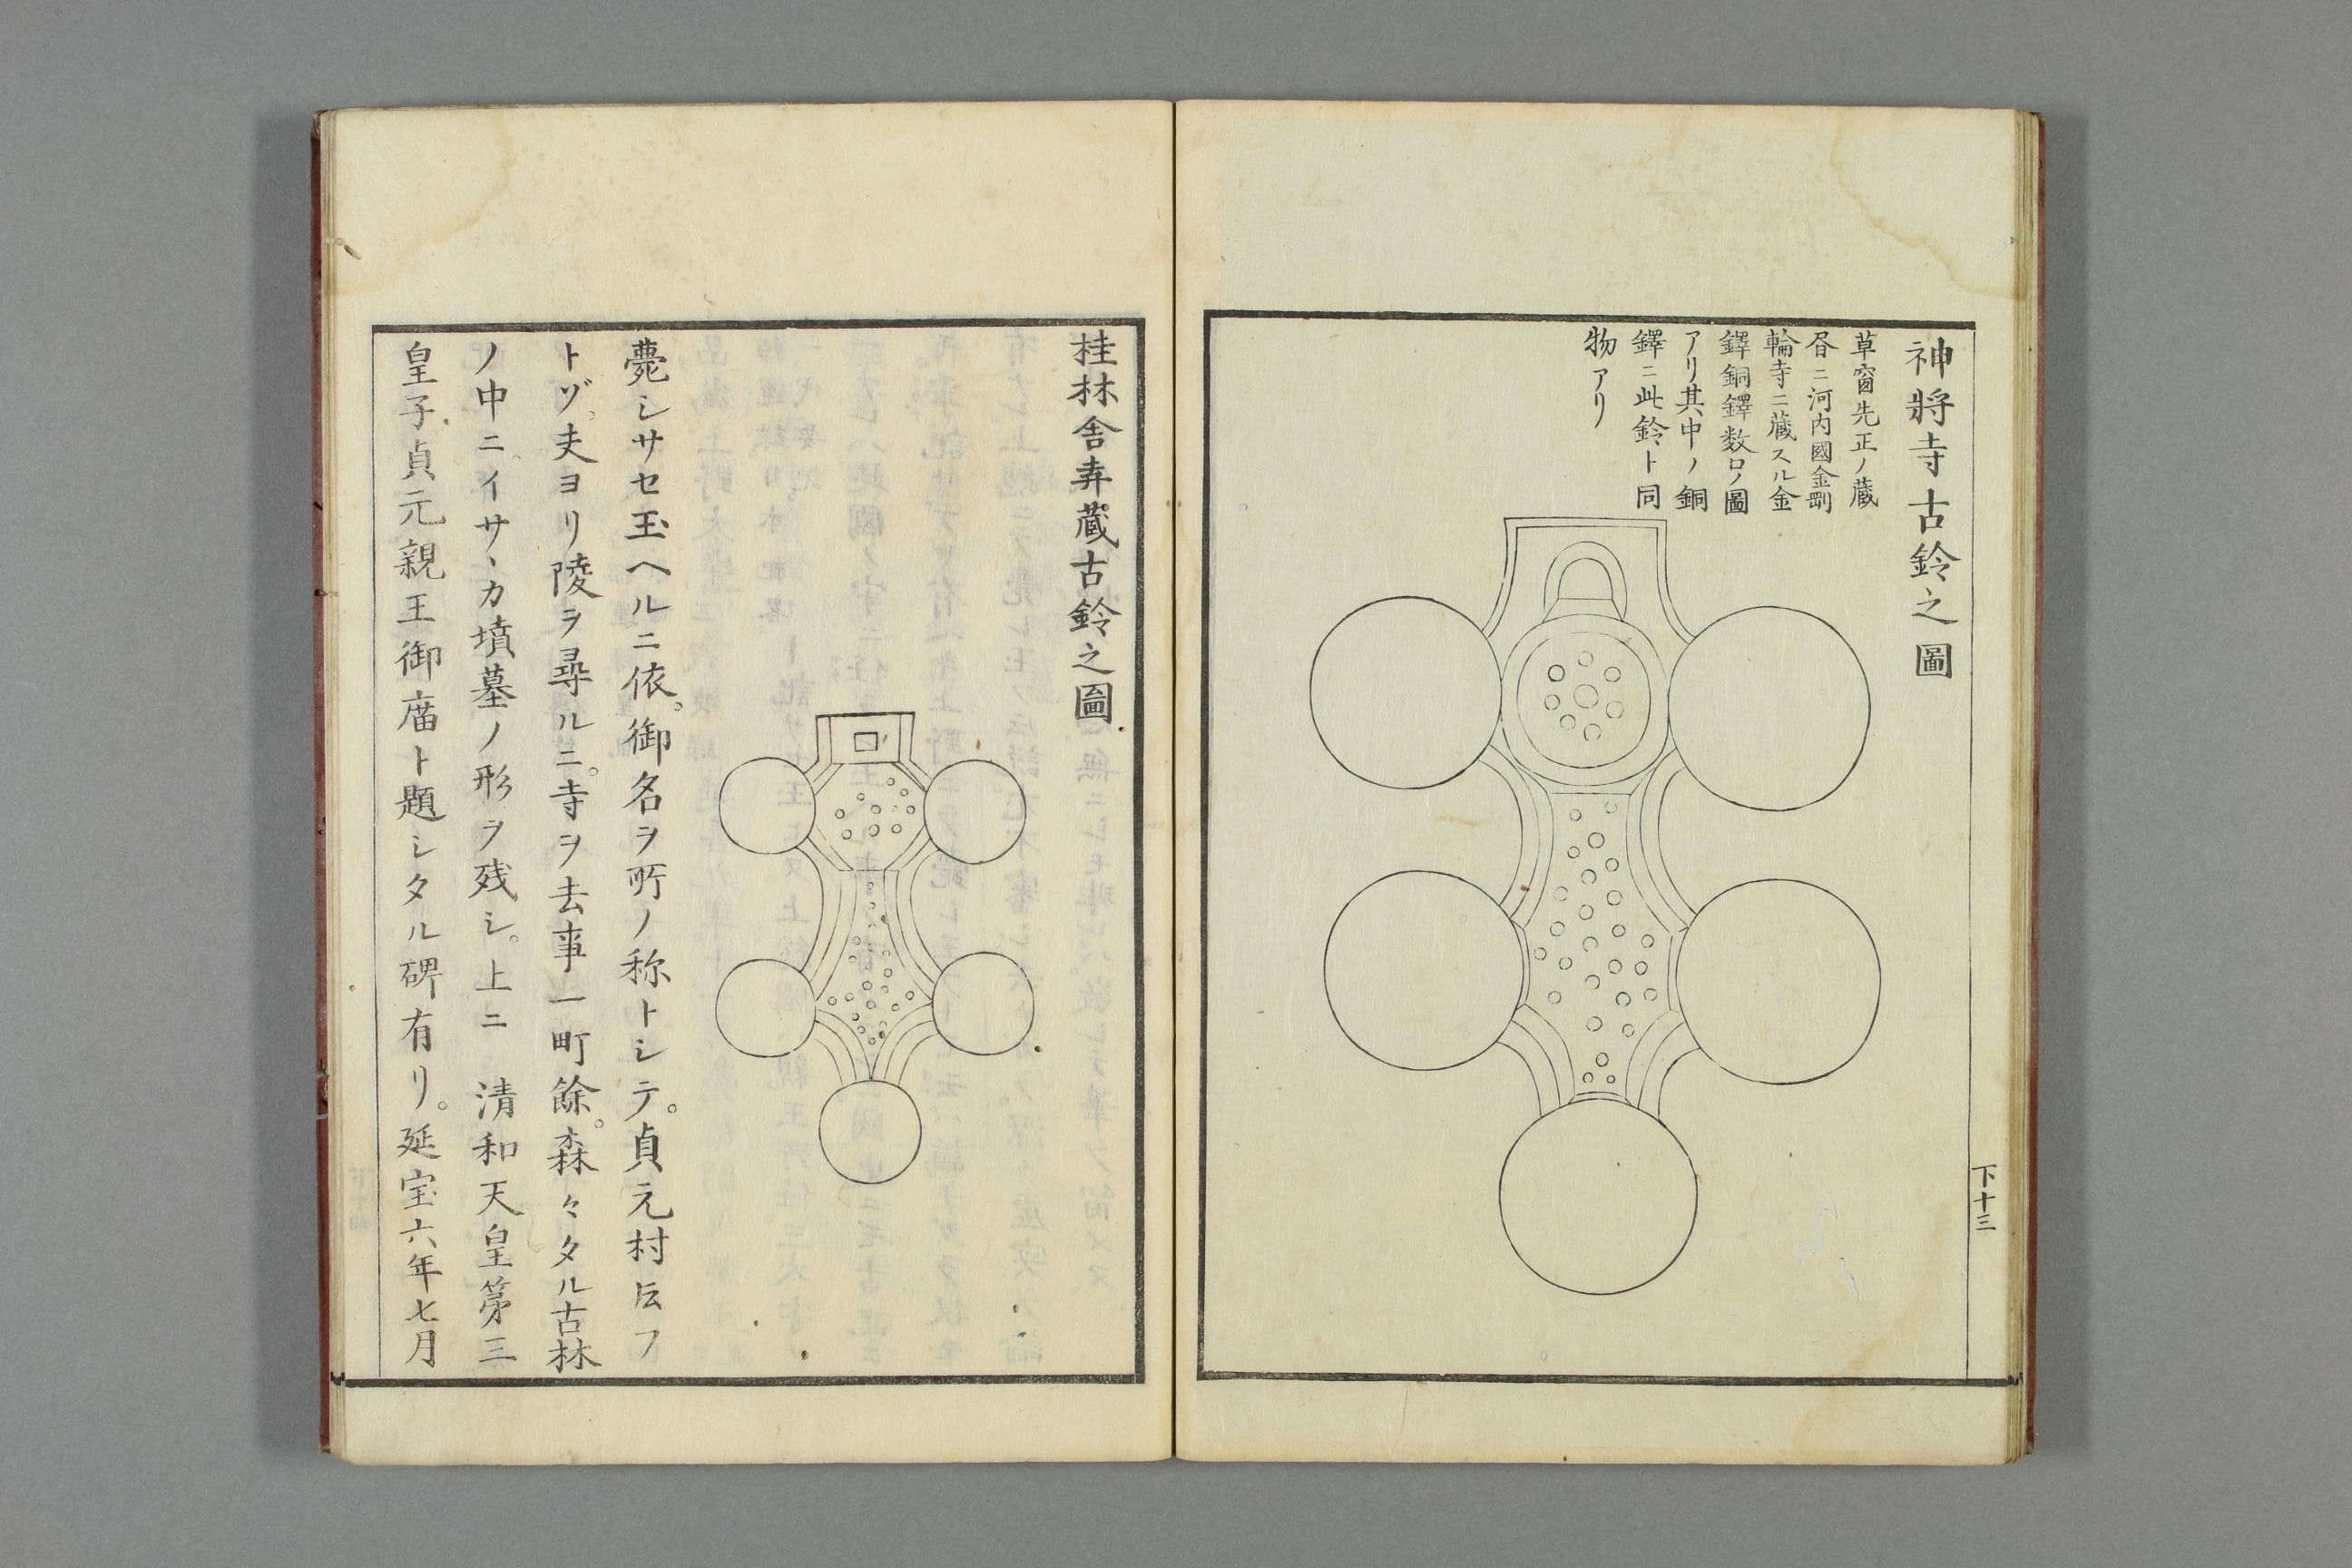 神將寺古鈴之圖
草窗先正ノ蔵
昏ニ河内國金剛
輪寺ニ蔵スル金
鐸銅鐸数口ノ圖
アリ其中ノ銅
鐸ニ此鈴ト同
物アリ
下十三
桂林舎弆蔵古鈴之圖
薨シサセ玉ヘルニ依。御名ヲ所ノ称トシテ。貞元村𪜈フ
トゾ。夫ヨリ陵ヲ尋ルニ。寺ヲ去事一町餘。森々タル古林
ノ中ニイサヽカ墳墓ノ形ヲ残シ。上ニ 清和天皇第三
皇子貞元親王御廟ト題シタル碑有リ。延宝六年七月